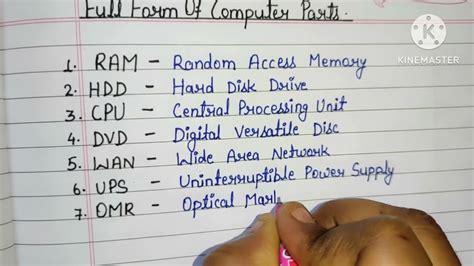 Full Form Of Computer Parts.
KINEMASTER
1. RAM - Random Access Memory
2. HDD - Hard Disk Drive
3. CPU - Central Processing Unit
4. DVD - Digital Versatile Disc
5. WAN - Wide Area Network
6. UPS - Uninterruptible Power Supply
7. OMR - Optical Mark